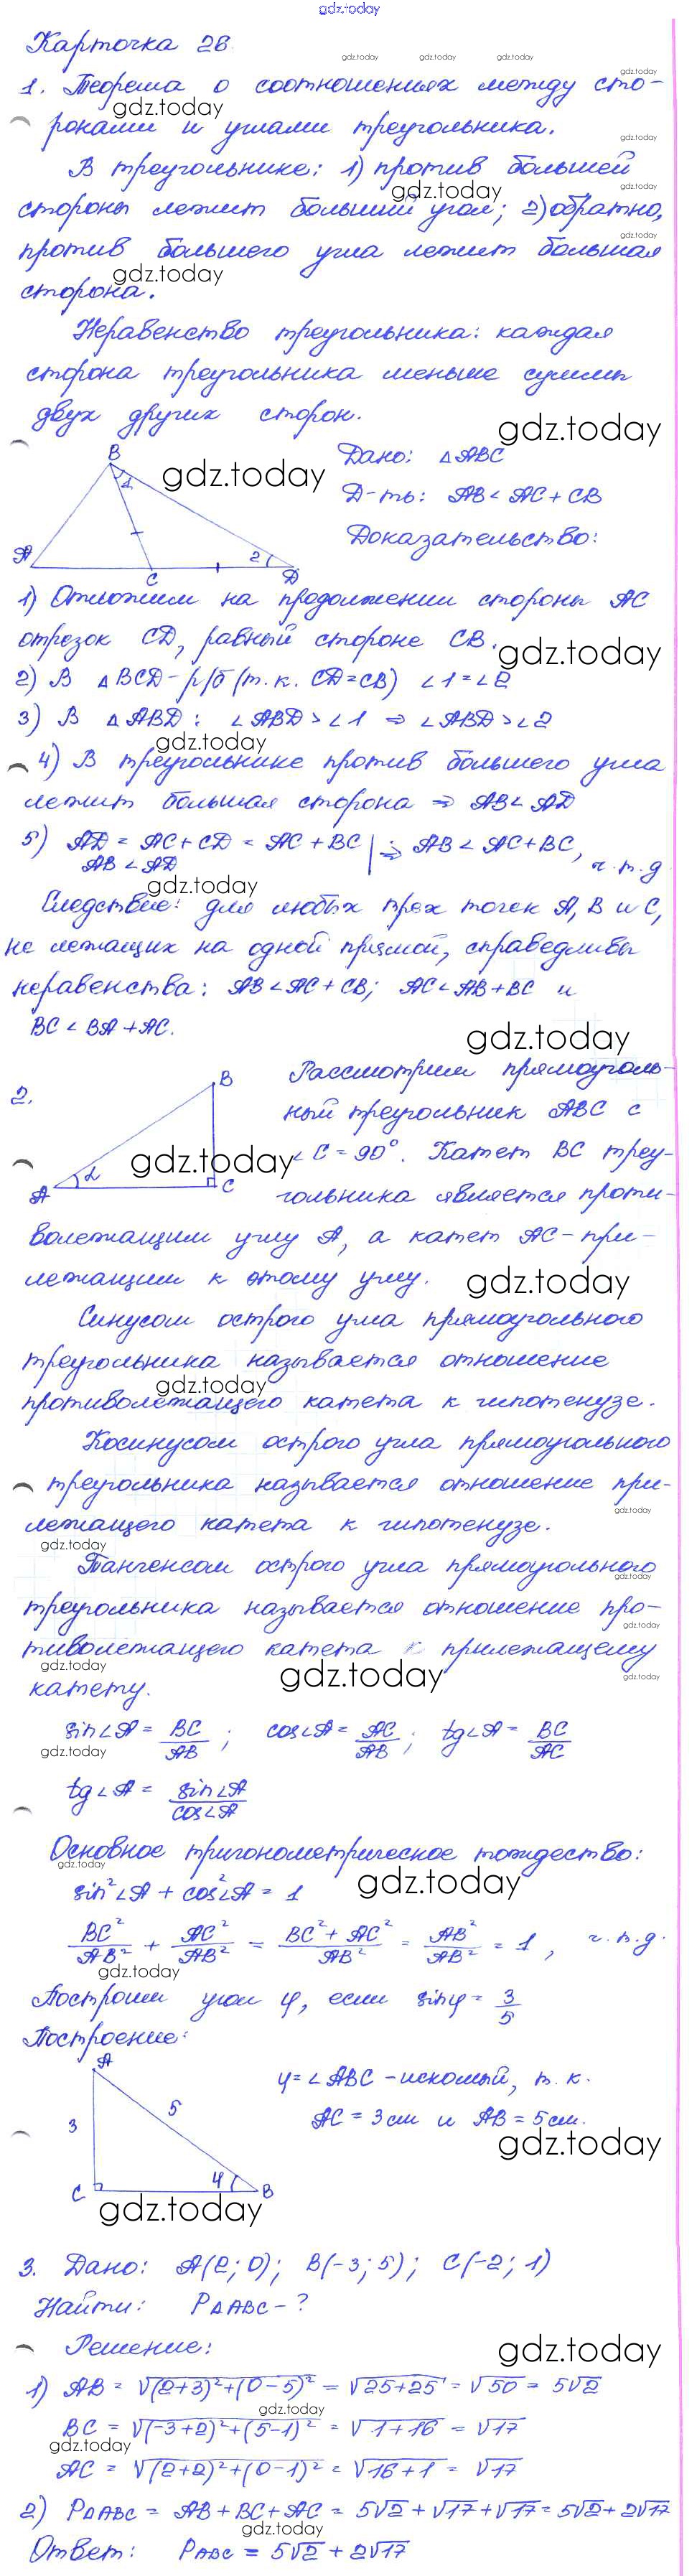 gdz.today
Карточка 26.
1. Теорема о соотношениях между сто-
ронами и углами треугольника.
В треугольнике: 1) против большей
стороны лежит больший угол; 2) обратно,
против большего угла лежит большая
сторона.
Неравенство треугольника: каждая
сторона треугольника меньше суммы
двух других сторон.
Дано: △ABC
Д-ть: AB < AC + CB
Доказательство:
B
1
2
A
C
D
1) Отложим на продолжении стороны AC
отрезок CD, равный стороне CB.
2) В △BCD - р/б (т.к. CD=CB) ∠1=∠2
3) В △ABD: ∠ABD > ∠1 ⇒ ∠ABD > ∠2
4) В треугольнике против большего угла
лежит большая сторона ⇒ AB < AD
5) AD = AC + CD = AC + BC | ⇒ AB < AC + BC,
AB < AD ч.т.д
Следствие: для любых трех точек A, B и C,
не лежащих на одной прямой, справедливы
неравенства: AB < AC + CB; AC < AB + BC и
BC < BA + AC.
2.
B
A
α
C
Рассмотрим прямоуголь-
ный треугольник ABC с
∠C = 90°. Катет BC треу-
гольника является проти-
волежащим углу A, а катет AC - при-
лежащим к этому углу.
Синусом острого угла прямоугольного
треугольника называется отношение
противолежащего катета к гипотенузе.
Косинусом острого угла прямоугольного
треугольника называется отношение при-
лежащего катета к гипотенузе.
Тангенсом острого угла прямоугольного
треугольника называется отношение про-
тиволежащего катета к прилежащему
катету.
sin∠A = BC/AB; cos∠A = AC/AB; tg∠A = BC/AC
tg∠A = sin∠A/cos∠A
Основное тригонометрическое тождество:
sin²∠A + cos²∠A = 1
BC²/AB² + AC²/AB² = (BC² + AC²)/AB² = AB²/AB² = 1, ч.т.д.
Построим угол φ, если sinφ = 3/5
Построение:
A
3
5
C
φ
B
φ = ∠ABC - искомый, т.к.
AC = 3 см и AB = 5 см.
3. Дано: A(2; 0); B(-3; 5); C(-2; 1)
Найти: P△ABC - ?
Решение:
1) AB = √((2+3)²+(0-5)²) = √(25+25) = √50 = 5√2
BC = √((-3+2)²+(5-1)²) = √(1+16) = √17
AC = √((2+2)²+(0-1)²) = √(16+1) = √17
2) P△ABC = AB + BC + AC = 5√2 + √17 + √17 = 5√2 + 2√17
Ответ: PABC = 5√2 + 2√17